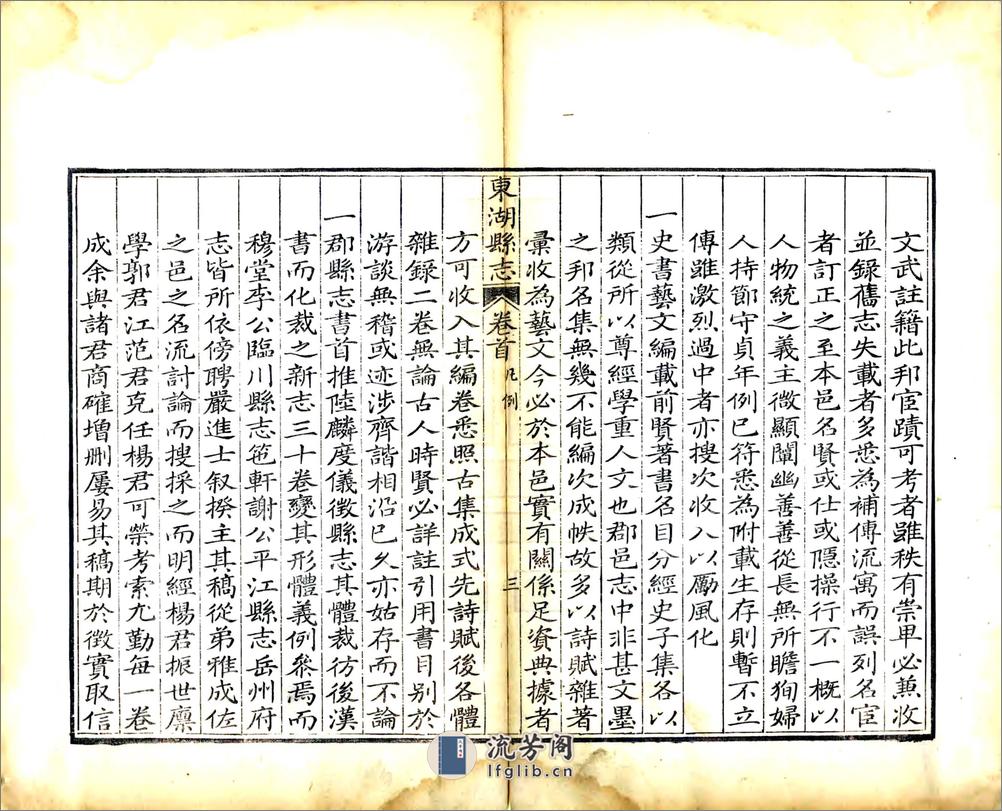 文武註籍此邦宦蹟可考者雖秩有崇卑必兼收
並錄舊志失載者多悉為補傳流寓而誤列名宦
者訂正之至本邑名賢或仕或隱操行不一概以
人物統之義主微顯闡幽善善從長無所瞻狥婦
人持節守貞年例已符悉為附載生存則暫不立
傳雖激烈過中者亦搜次收入以勵風化
一史書藝文編載前賢著書名目分經史子集各以
類從所以尊經學重人文也郡邑志中非甚文墨
之邦名集無幾不能編次成帙故多以詩賦雜著
彙收為藝文今必於本邑實有關係足資典據者
東湖縣志 卷首 凡例 三
方可收入其編卷悉照古集成式先詩賦後各體
雜錄二卷無論古人時賢必詳註引用書目別於
游談無稽或迹涉齊諧相沿已久亦姑存而不論
一郡縣志書首推陸麟度儀徵縣志其體裁彷後漢
書而化裁之新志三十卷變其形體義例叅焉而
穆堂李公臨川縣志笆軒謝公平江縣志岳州府
志皆所依傍聘嚴進士叙揆主其稿從弟雅成佐
之邑之名流討論而搜採之而明經楊君振世廩
學郭君江范君克任楊君可榮考索尢勤每一卷
成余與諸君商確增刪屢易其稿期於徵實取信
流芳阁
lfglib.cn